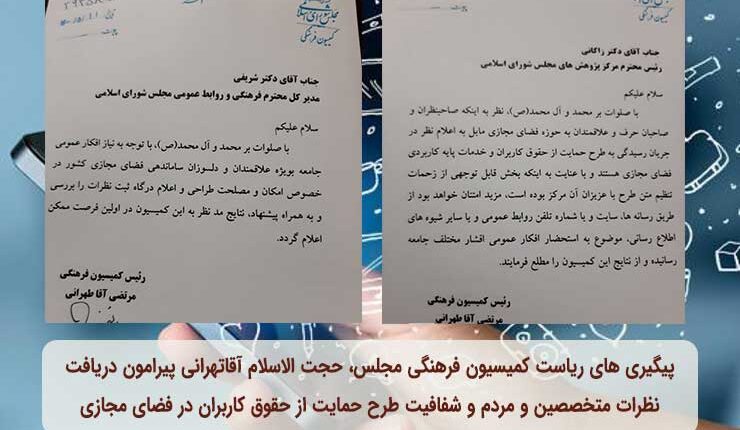 مجلس شورای اسلامی
کمیسیون فرهنگی
جناب آقای دکتر زاکانی
رئیس محترم مرکز پژوهش های مجلس شورای اسلامی
سلام علیکم
با صلوات بر محمد و آل محمد(ص)، نظر به اینکه صاحبنظران و
صاحبان حرف و علاقمندان به حوزه فضای مجازی مایل به اعلام نظر در
جریان رسیدگی به طرح حمایت از حقوق کاربران و خدمات پایه کاربردی
فضای مجازی هستند و با عنایت به اینکه بخش قابل توجهی از زحمات
تنظیم متن طرح با عزیزان آن مرکز بوده است، مزید امتنان خواهد بود از
طریق رسانه ها، سایت و یا شماره تلفن روابط عمومی و یا سایر شیوه های
اطلاع رسانی، موضوع به استحضار افکار عمومی اقشار مختلف جامعه
رسانیده و از نتایج این کمیسیون را مطلع فرمایند.
رئیس کمیسیون فرهنگی
مرتضی آقا طهرانی
مجلس شورای اسلامی
کمیسیون فرهنگی
جناب آقای دکتر شریفی
مدیر کل محترم فرهنگی و روابط عمومی مجلس شورای اسلامی
سلام علیکم
با صلوات بر محمد و آل محمد(ص)، با توجه به نیاز افکار عمومی
جامعه بویژه علاقمندان و دلسوزان ساماندهی فضای مجازی کشور در
خصوص امکان و مصلحت طراحی و اعلام درگاه ثبت نظرات را بررسی
و به همراه پیشنهاد، نتایج مد نظر به این کمیسیون در اولین فرصت ممکن
اعلام گردد.
رئیس کمیسیون فرهنگی
مرتضی آقا طهرانی
پیگیری های ریاست کمیسیون فرهنگی مجلس، حجت الاسلام آقاتهرانی پیرامون دریافت
نظرات متخصصین و مردم و شفافیت طرح حمایت از حقوق کاربران در فضای مجازی